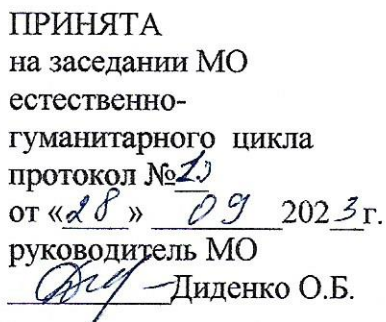 ПРИНЯТА
на заседании МО
естественно-
гуманитарного цикла
протокол №
от «28» 09 2023 г.
руководитель МО
Диденко О.Б.